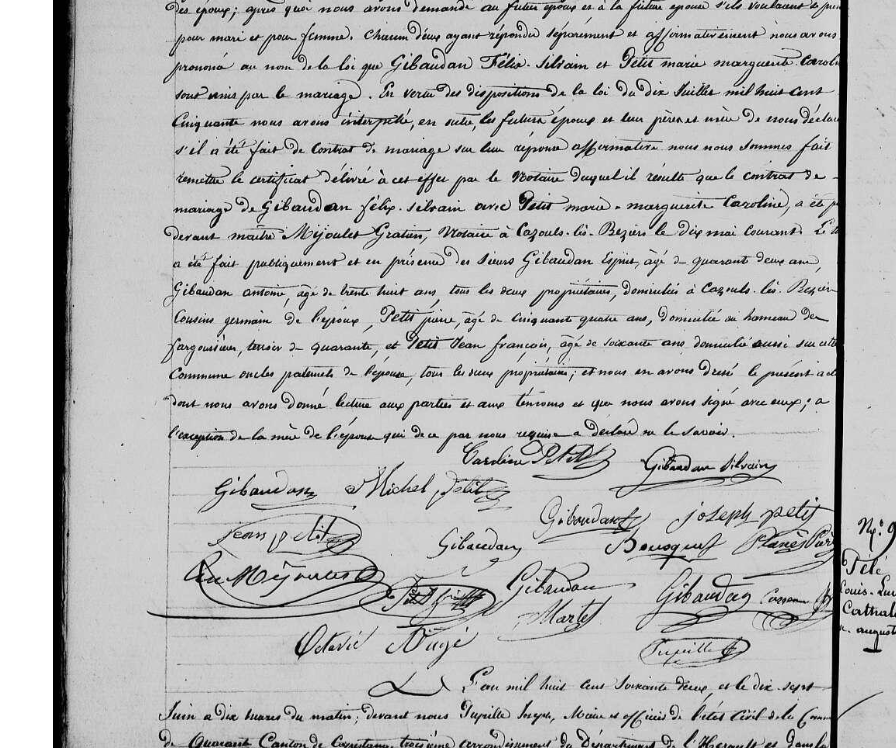 des époux; après quoi nous avons demandé au futur époux et à la future épouse s'ils voulaient se
pour mari et pour femme. Chacun d'eux ayant répondu séparément et affirmativement nous avons
prononcé au nom de la loi que Gibaudan Félix-Silvain et Petit marie marguerite Carol
sont unis par le mariage. En vertu des dispositions de la loi du dix Juillet mil huit cent
Cinquante nous avons interpellé, en suite, les futurs époux et leur père et mère de nous déclar
s'il a été fait de Contrat de mariage sur leur réponse affirmative nous nous sommes fait
remettre le certificat délivré à cet effet par le Notaire duquel il résulte que le contrat de
mariage de Gibaudan félix-silvain avec Petit marie-marguerite Caroline, a été p
devant maître Mijoulet Gratien, Notaire à Cazouls-lès-Beziers le dix mai courant. Le t
a été fait publiquement et en présence des sieurs Gibaudan Espirit, âgé de quarante deux ans,
Gibaudan antoine, âgé de trente huit ans, tous les deux propriétaires, domiciliés à Cazouls-lès-Bezier
Cousins germain de l'époux, Petit pierre, âgé de Cinquante quatre ans, domicilié au hameau des
fargoussières, terroir de quarante, et Petit Jean françois, âgé de soixante ans domicilié aussi sur cette
Commune oncles paternels de l'épouse, tous les deux propriétaires; et nous en avons dressé le présent act
dont nous avons donné lecture aux parties et aux témoins et que nous avons signé avec eux; à
l'exception de la mère de l'épouse qui de ce par nous requise a déclaré ne le savoir.
Caroline Petit Gibaudan Silvain
Gibaudan Michel Petit
Gibaudan joseph petit
Jean Petit Gibaudan Bousquet Planès
Mijoulet Gibaudan Gibaudan
Martel
Octavie Augé Pupille
L'an mil huit cent soixante deux, et le dix-sept
Juin a dix heures du matin; devant nous Pupille Joseph, Maire et officier de l'état Civil de la Commu
de Quarante Canton de Capestang, troisième arrondissement du département de l'Hérault et dans la
N°. 9
Louis
august